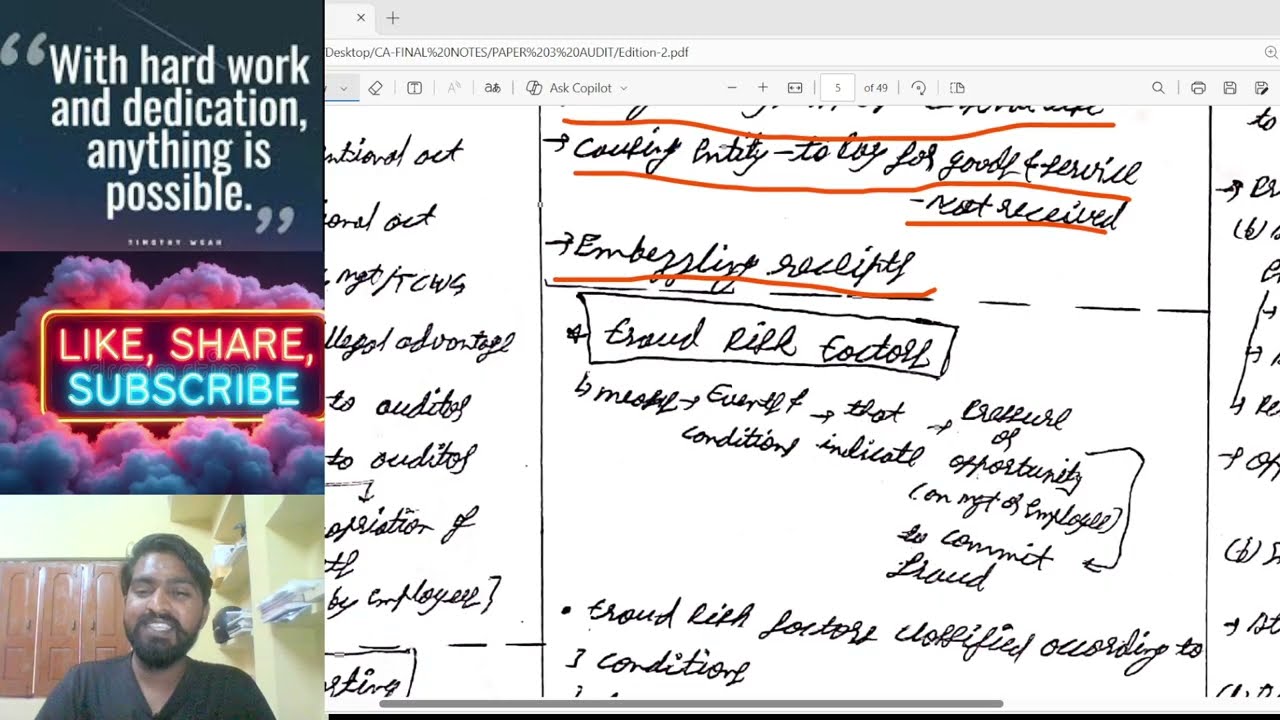 “With hard work
and dedication,
anything is
possible.”
TIMOTHY WEAH
LIKE, SHARE,
SUBSCRIBE
Desktop/CA-FINAL%20NOTES/PAPER%203%20AUDIT/Edition-2.pdf
Ask Copilot
5 of 49
ntional act
ional act
mgt/TCWG
illegal advantage
to auditor
to auditor
opriation of
by employees}
rting
→ Causing Entity - to Pay for goods & service
- not received
→ Embezzling receipts
* Fraud Risk Factors
↳ means → Events & → that → Pressure
conditions indicate or
opportunity
(on mgt or Employee)
to commit
Fraud
• Fraud Risk factors classified according to
3 conditions
to
(b)
(b)